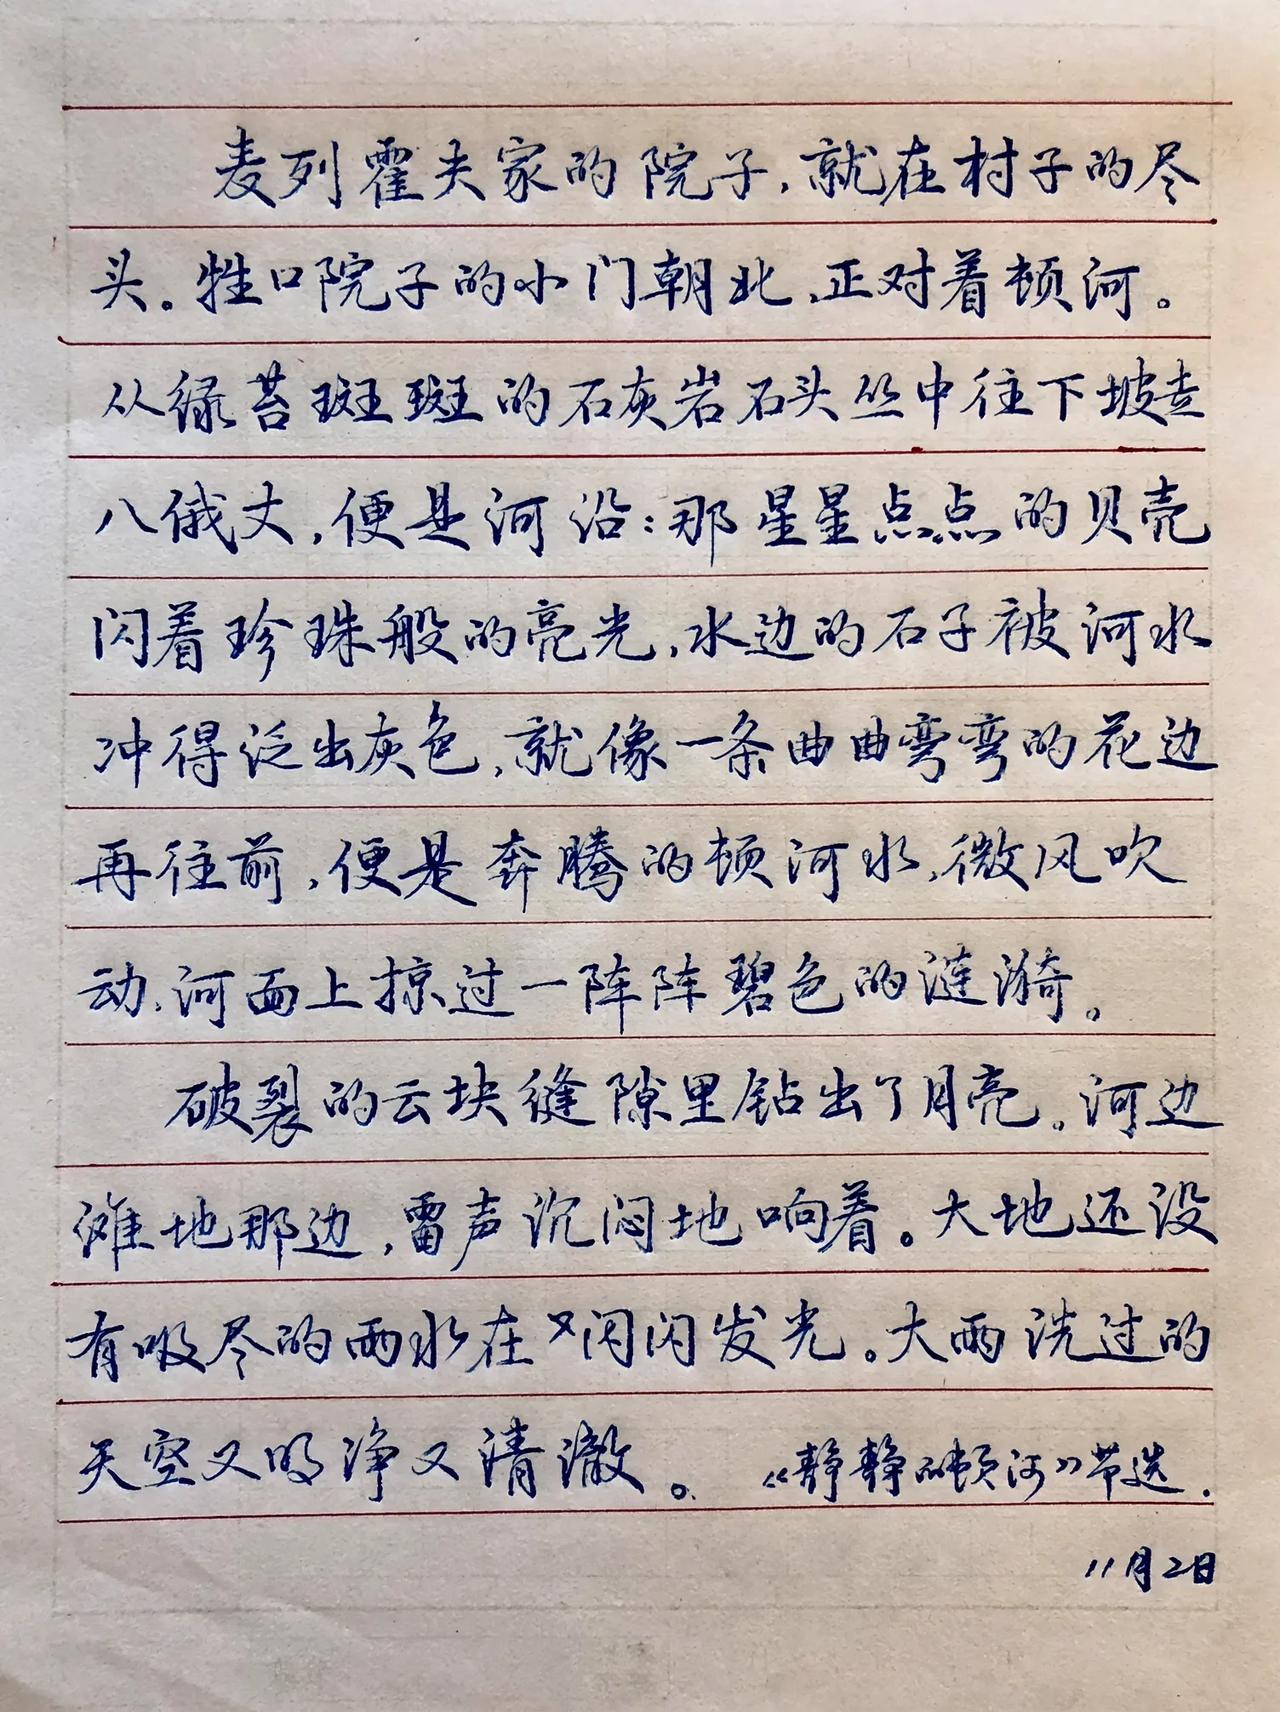 麦列霍夫家的院子，就在村子的尽
头。牲口院子的小门朝北，正对着顿河。
从绿苔斑斑的石灰岩石头丛中往下坡走
八俄丈，便是河沿：那星星点点的贝壳
闪着珍珠般的亮光，水边的石子被河水
冲得泛出灰色，就像一条曲曲弯弯的花边
再往前，便是奔腾的顿河水，微风吹
动，河面上掠过一阵阵碧色的涟漪。
破裂的云块缝隙里钻出了月亮。河边
滩地那边，雷声沉闷地响着。大地还没
有吸尽的雨水在又闪闪发光。大雨洗过的
天空又明净又清澈。《静静的顿河》节选.
11月2日